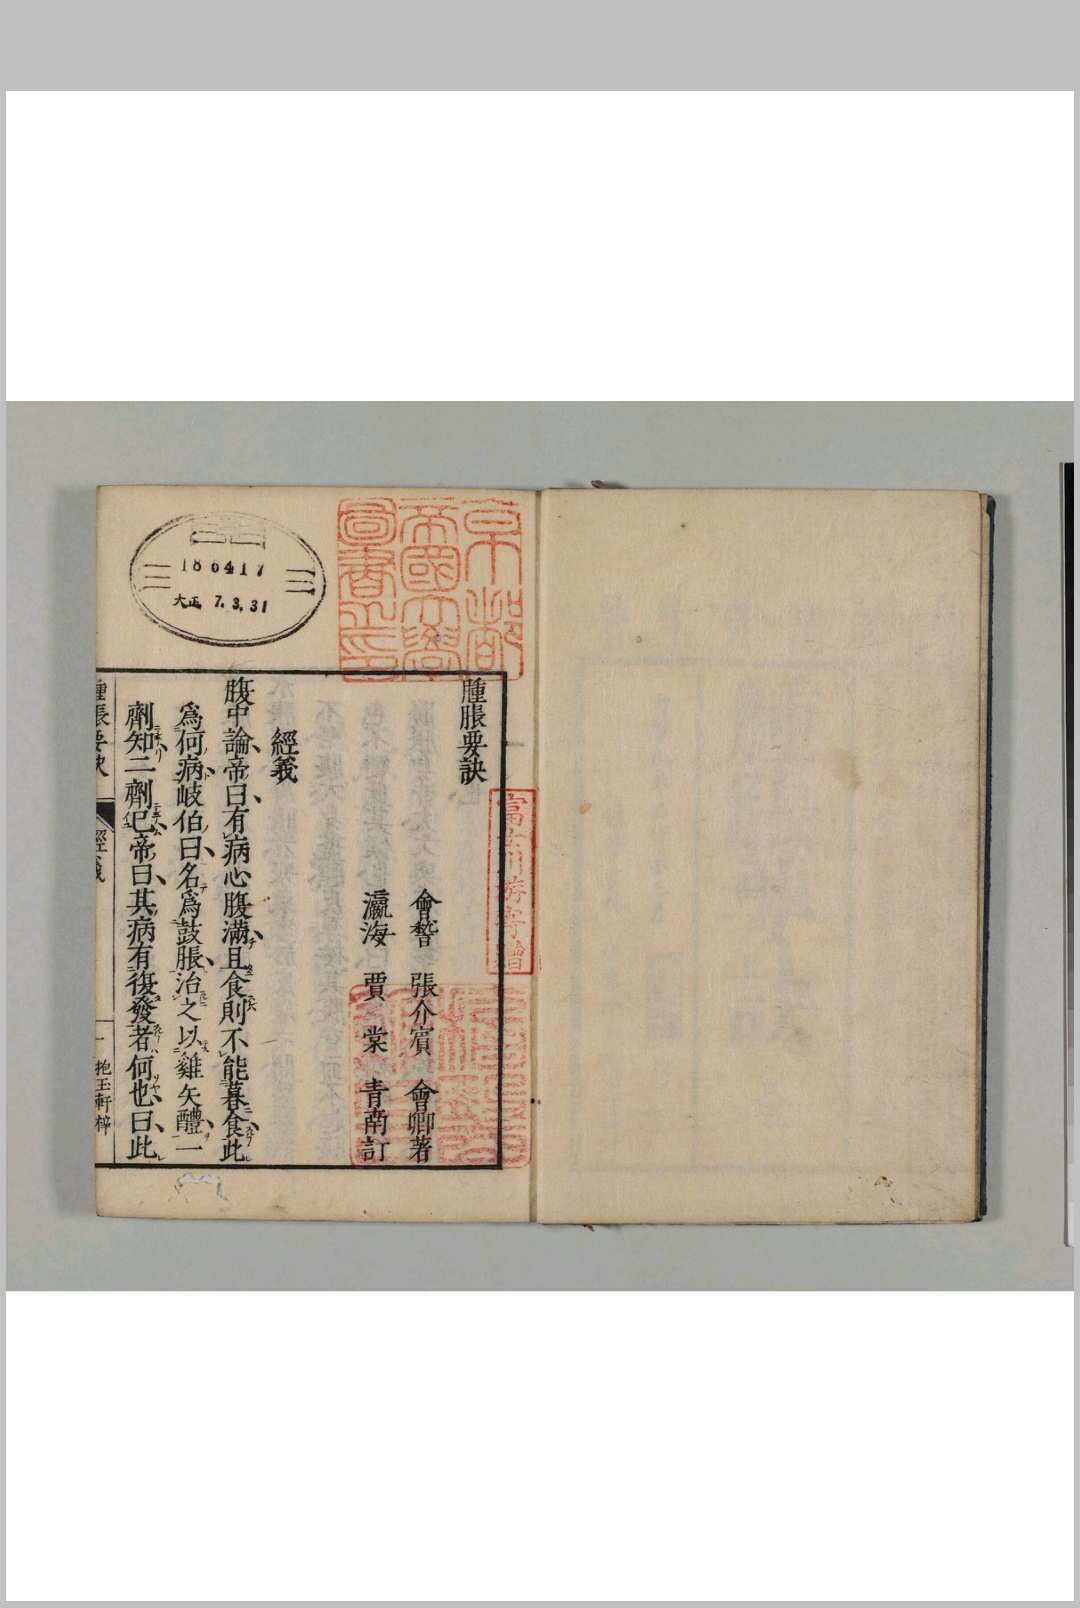 京都
帝國大學
圖書之印
186417
大正 7.3.31
富士川游寄贈
腫脹要訣
會稽 張介賓 會卿著
瀛海 賈棠 青南訂
經義
腹中論帝曰有病心腹滿且食則不能暮食此
爲何病岐伯曰名爲鼓脹治之以雞矢醴一
劑知二劑已帝曰其病有復發者何也曰此
腫脹要訣
經義
一
抱玉軒梓